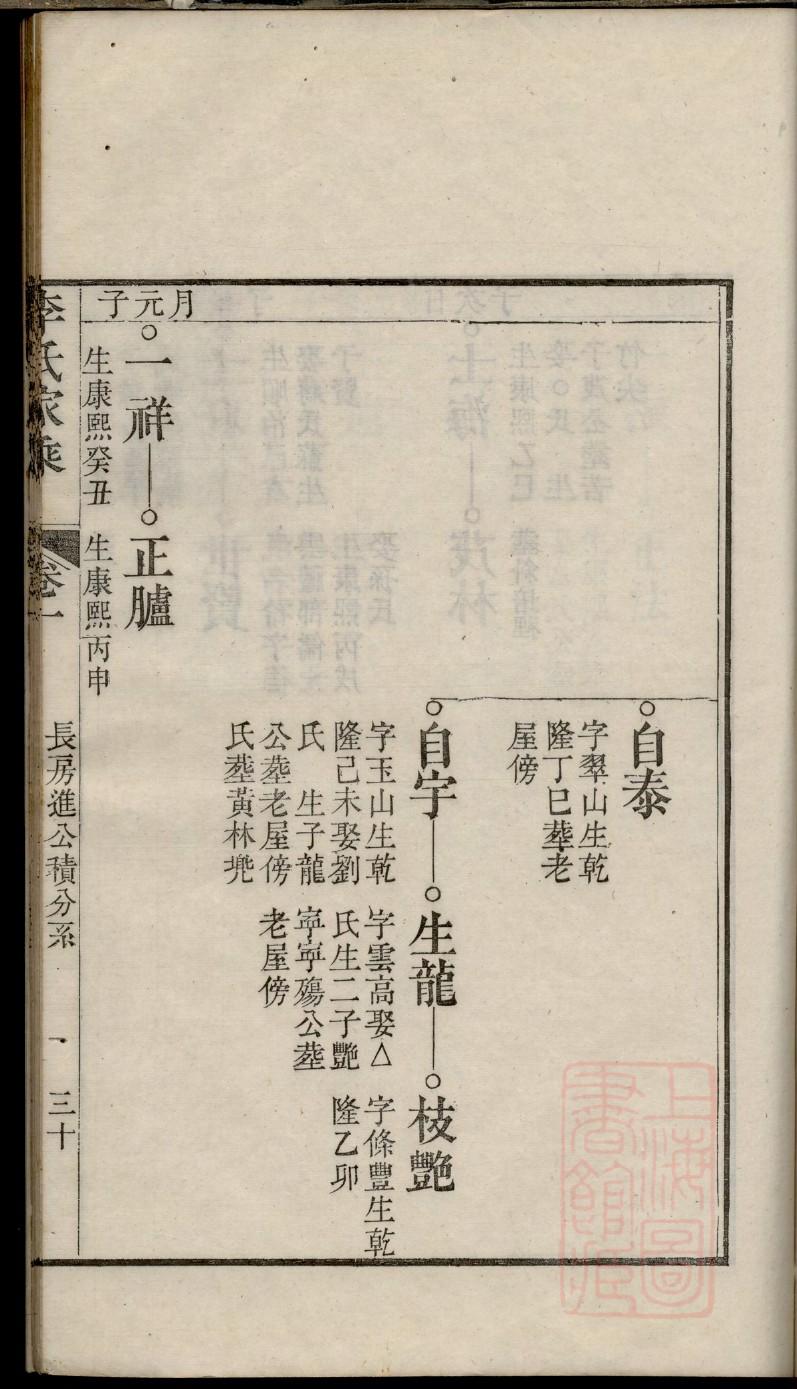 自泰
字翠山生乾
隆丁巳葬老
屋傍
自宇
字玉山生乾
隆己未娶劉
氏　生子龍
公葬老屋傍
氏葬黃林兠
生龍
字雲高娶△
氏生二子艷
寜寜殤公葬
老屋傍
枝艷
字條豐生乾
隆乙卯
月元子
一祥
生康熙癸丑
正臚
生康熙丙申
李氏家乘
卷一
長房進公積分系
一
三十
上海圖
書館藏